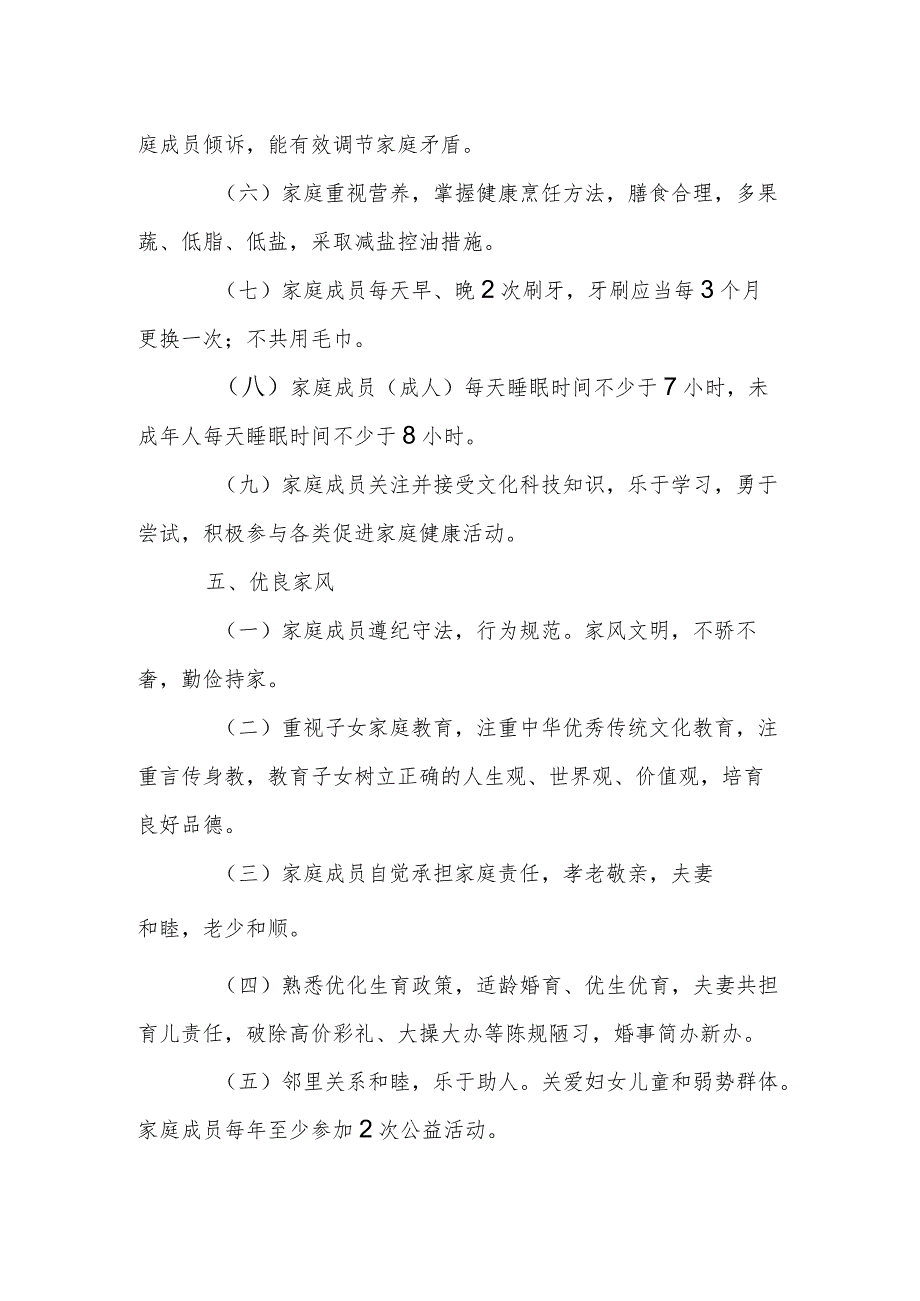 庭成员倾诉，能有效调节家庭矛盾。
（六）家庭重视营养，掌握健康烹饪方法，膳食合理，多果
蔬、低脂、低盐，采取减盐控油措施。
（七）家庭成员每天早、晚2次刷牙，牙刷应当每3个月
更换一次；不共用毛巾。
（八）家庭成员（成人）每天睡眠时间不少于7小时，未
成年人每天睡眠时间不少于8小时。
（九）家庭成员关注并接受文化科技知识，乐于学习，勇于
尝试，积极参与各类促进家庭健康活动。
五、优良家风
（一）家庭成员遵纪守法，行为规范。家风文明，不骄不
奢，勤俭持家。
（二）重视子女家庭教育，注重中华优秀传统文化教育，注
重言传身教，教育子女树立正确的人生观、世界观、价值观，培育
良好品德。
（三）家庭成员自觉承担家庭责任，孝老敬亲，夫妻
和睦，老少和顺。
（四）熟悉优化生育政策，适龄婚育、优生优育，夫妻共担
育儿责任，破除高价彩礼、大操大办等陈规陋习，婚事简办新办。
（五）邻里关系和睦，乐于助人。关爱妇女儿童和弱势群体。
家庭成员每年至少参加2次公益活动。